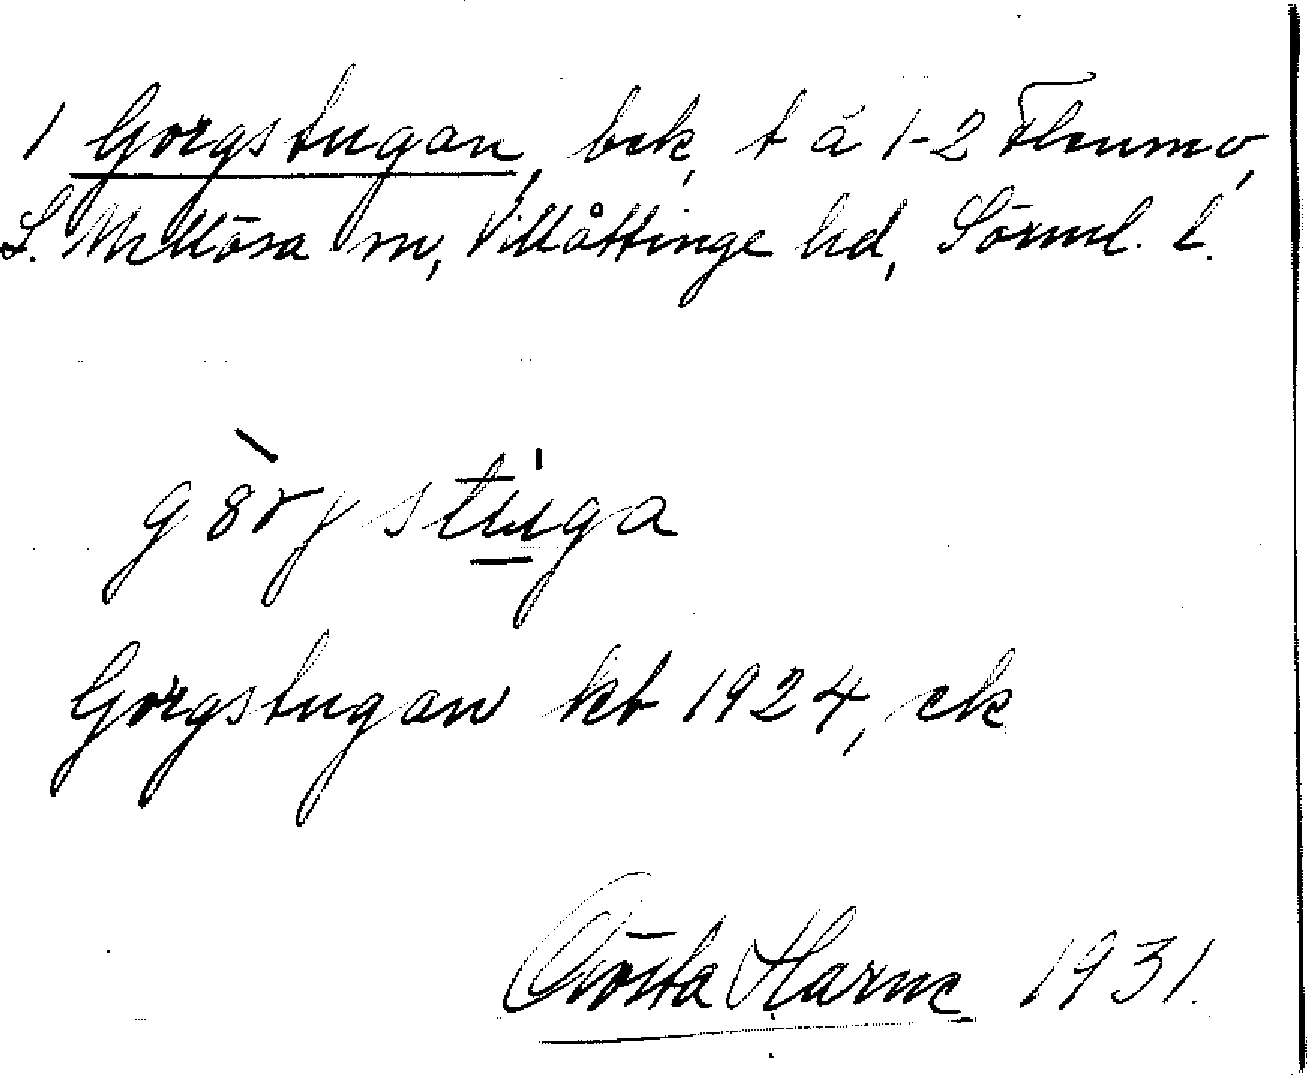 1 Gorgstugan, bek, t å 1-2 Flenmo,
S. Mellösa sn, Villåttinge hd, Södml. l.
gò̀rgstu̱ga
Gorgstugan kb 1924, ek
Gösta Harne 1931.